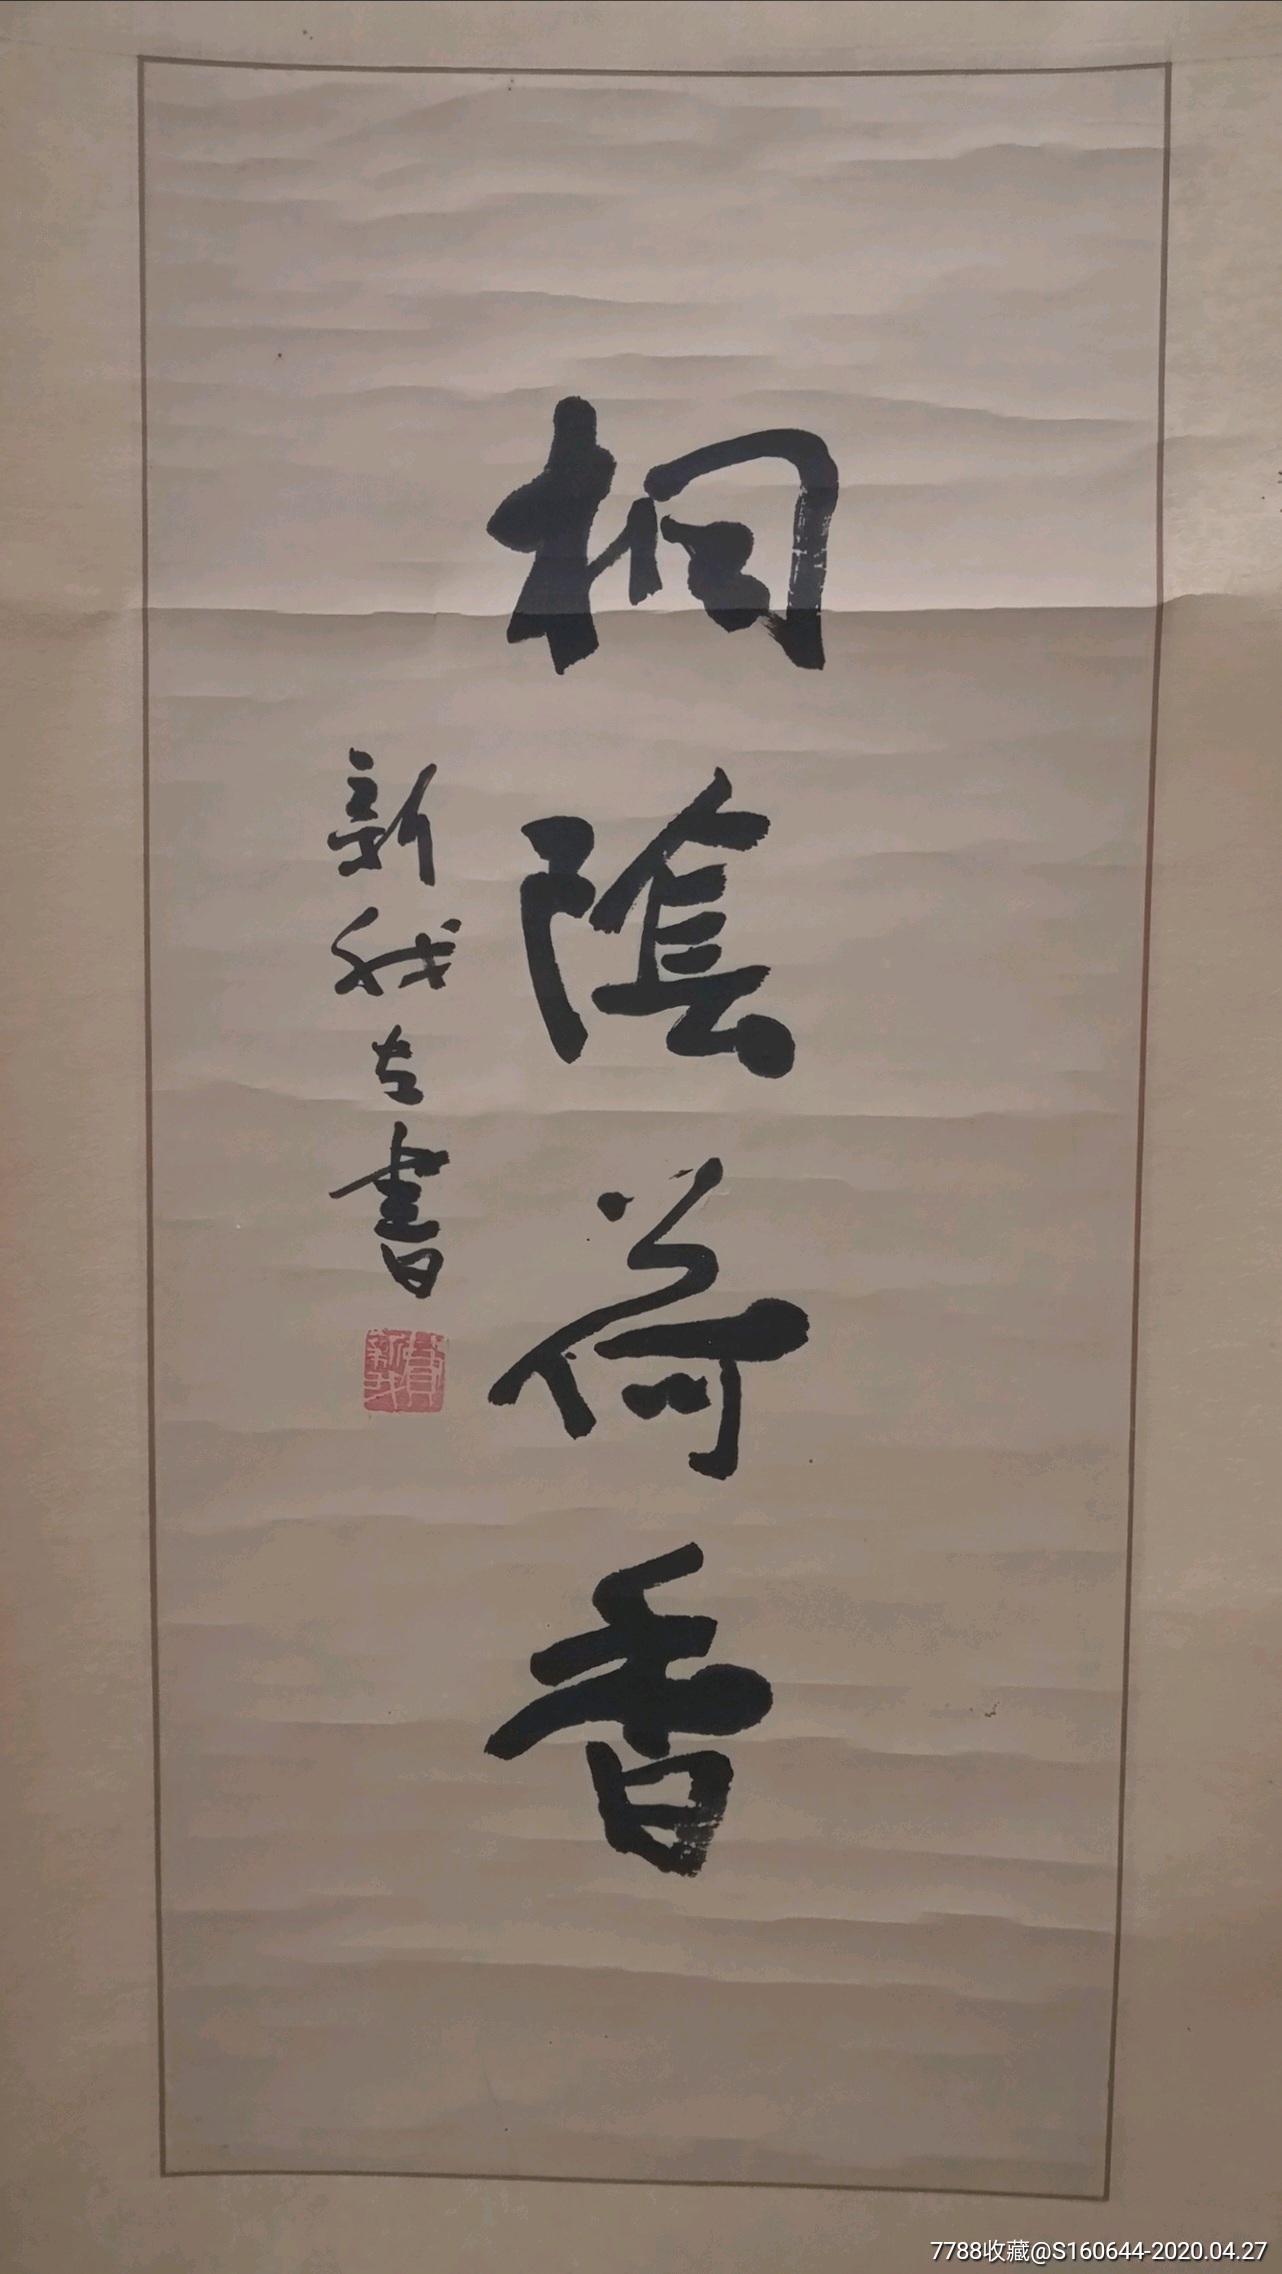 桐陰荷香
新我左書
費新我
7788收藏@S160644-2020.04.27